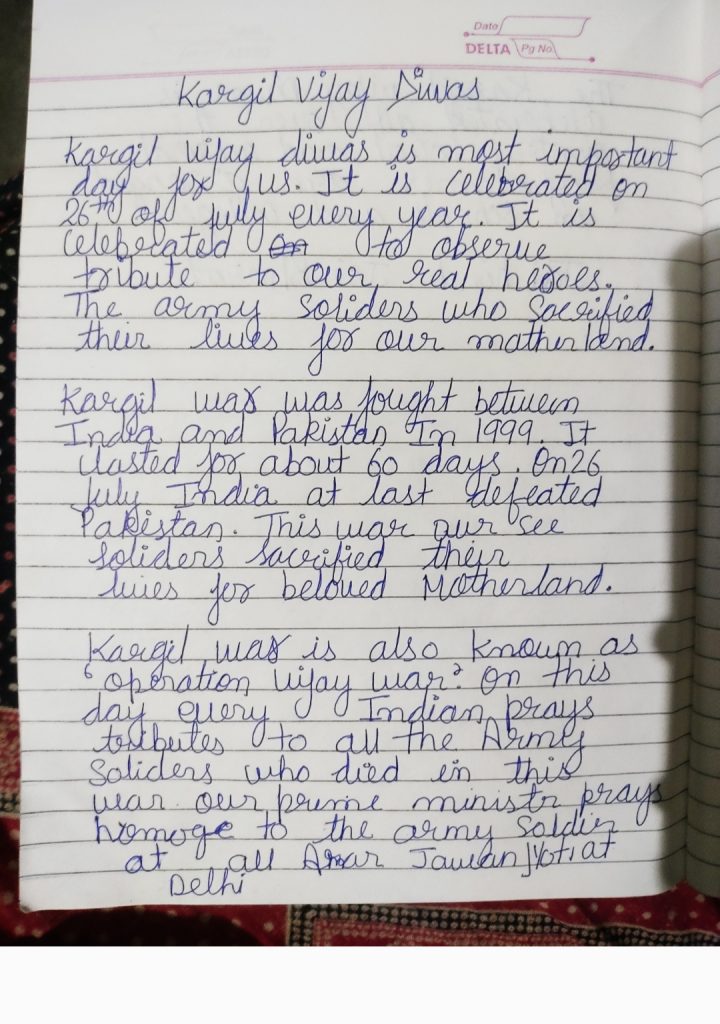 Date
DELTA Pg No.
Kargil Vijay Diwas
Kargil vijay diwas is most important
day for us. It is celebrated on
26th of july every year. It is
celeberated to observe
tribute to our real heroes.
The army soliders who sacrified
their lives for our matherland.
Kargil war was fought between
India and Pakistan In 1999. It
lasted for about 60 days. On 26
july India at last defeated
Pakistan. This war our see
soliders sacrified their
lives for beloved Motherland.
Kargil war is also known as
'operation vijay war? On this
day every Indian prays
tributes to all the Army
Soliders who died in this
war. our prime ministr prays
homoge to the army Soldier
at all Amar Jawan Jyoti at
Delhi